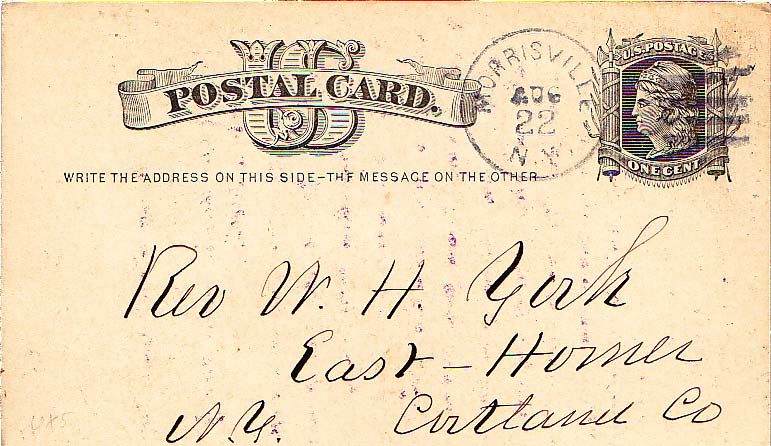 US
POSTAL CARD.
WRITE THE ADDRESS ON THIS SIDE-THE MESSAGE ON THE OTHER
MORRISVILLE
AUG
22
N.Y.
U.S. POSTAGE
ONE CENT
Rev W. H. York
East-Homer
N.Y. Cortland Co
UX5